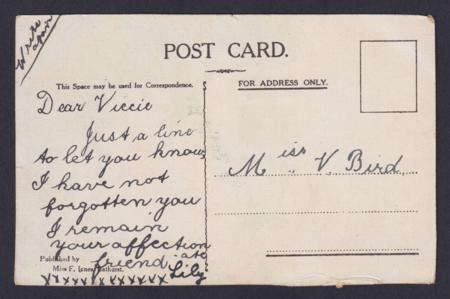 Write
again
POST CARD.
This Space may be used for Correspondence.
FOR ADDRESS ONLY.
Dear Viccie
Just a line
to let you know
I have not
forgotten you
I remain
your affection
ate
friend
Lily
xxxxxxxxxxx
Miss V. Bird
Published by
Miss F. Bathurst.